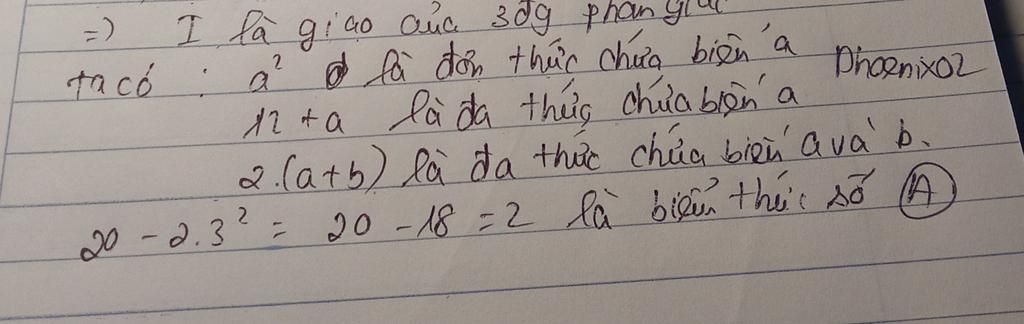 =) I là giao của 3 đg phân giác
ta có : a² là đơn thức chứa biến a Phoenix02
12 + a là đa thức chứa biến a
2.(a+b) là đa thức chứa biến a và b.
20 - 2.3² = 20 - 18 = 2 là biểu thức số A